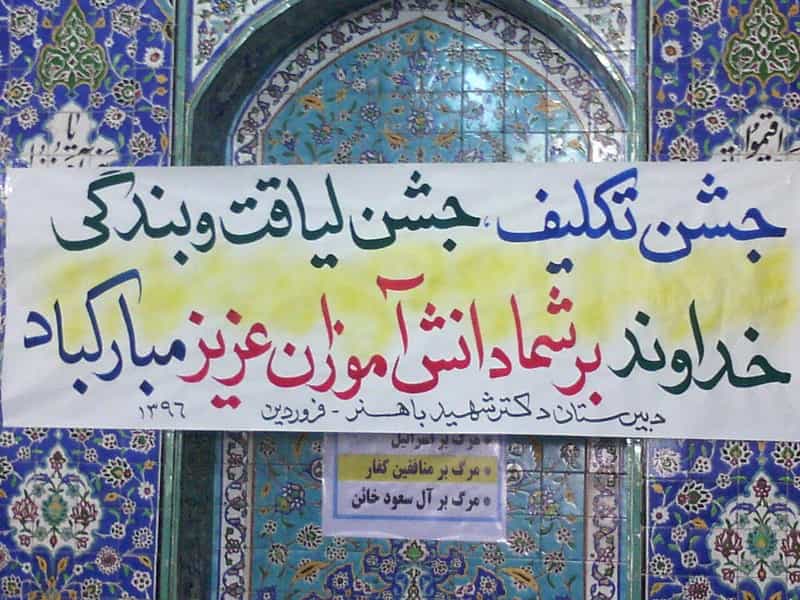 جشن تکلیف، جشن لیاقت و بندگی
خداوند بر شما دانش آموزان عزیز مبارکباد
دبیرستان دکتر شهید باهنر - فروردین ۱۳۹۶
* مرگ بر اسرائیل
* مرگ بر منافقین کفار
* مرگ بر آل سعود خائن
اقیموا